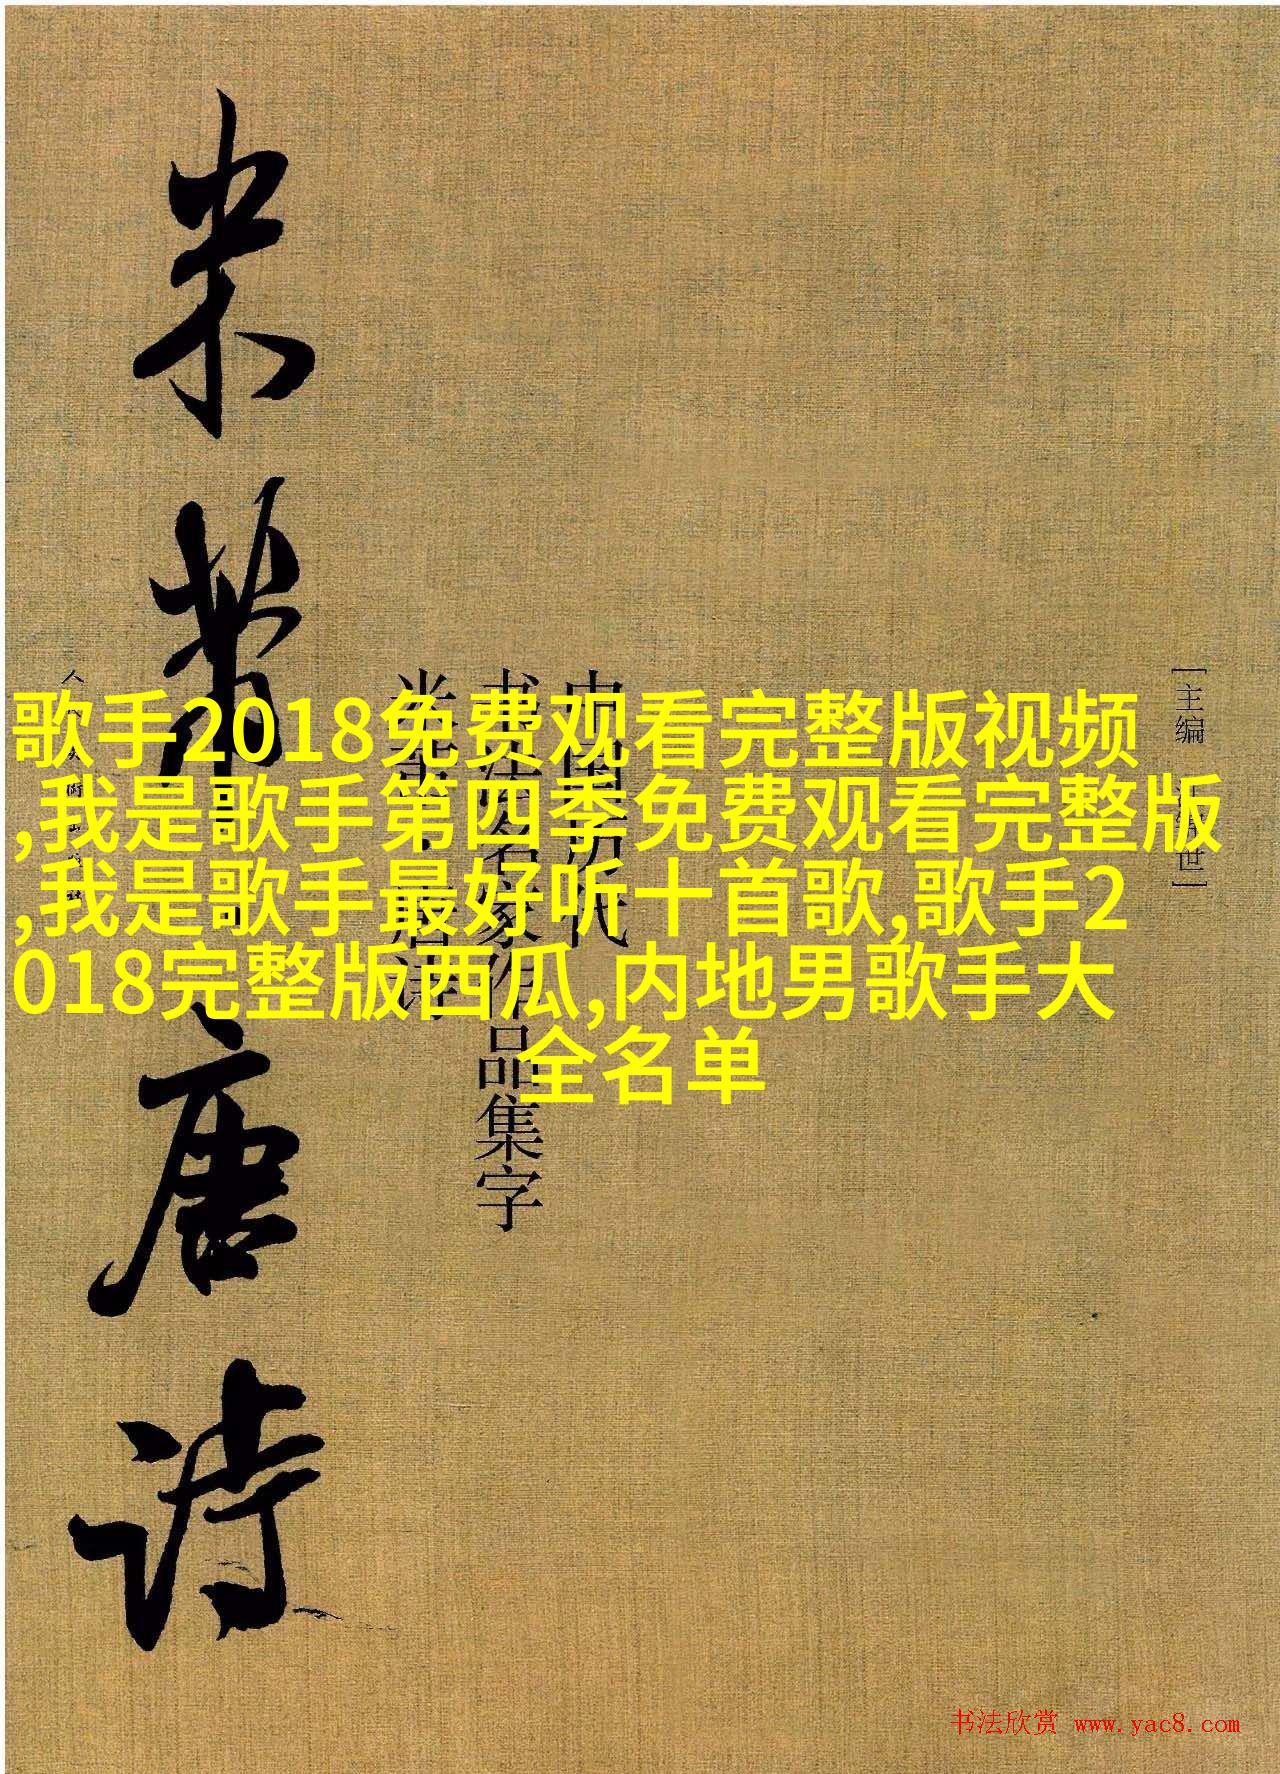 歌手2018免费观看完整版视频
,我是歌手第四季免费观看完整版
,我是歌手最好听十首歌,歌手2
018完整版西瓜,内地男歌手大
全名单
[主编 世]
中国历代
书法名家作品集字
米芾·唐诗
米芾唐诗
书法欣赏 www.yac8.com